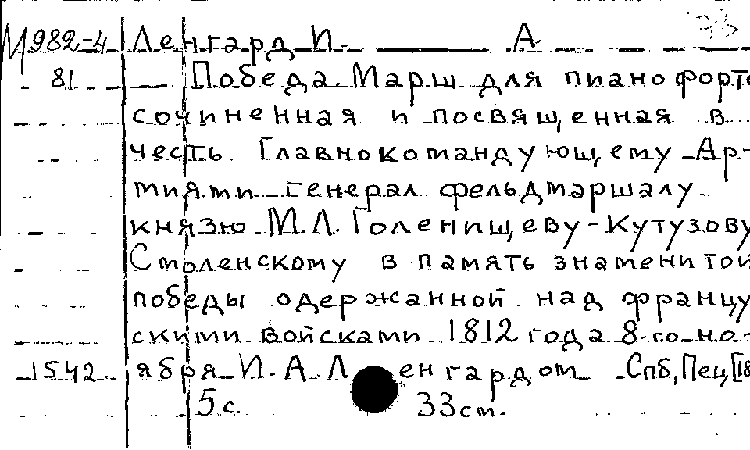 М982-4 Ленгард И. А
81 Победа Марш для пианофорте
сочиненная и посвященная в
честь Главнокомандующему Ар-
миями генерал фельдмаршалу
князю М.Л. Голенищеву-Кутузову
Смоленскому в память знаменитой
победы одержанной над францу
скими войсками 1812 года 8-го но-
1542 ября И.А.Ленгардом Спб, Печ, [18
5 с. 33 см.